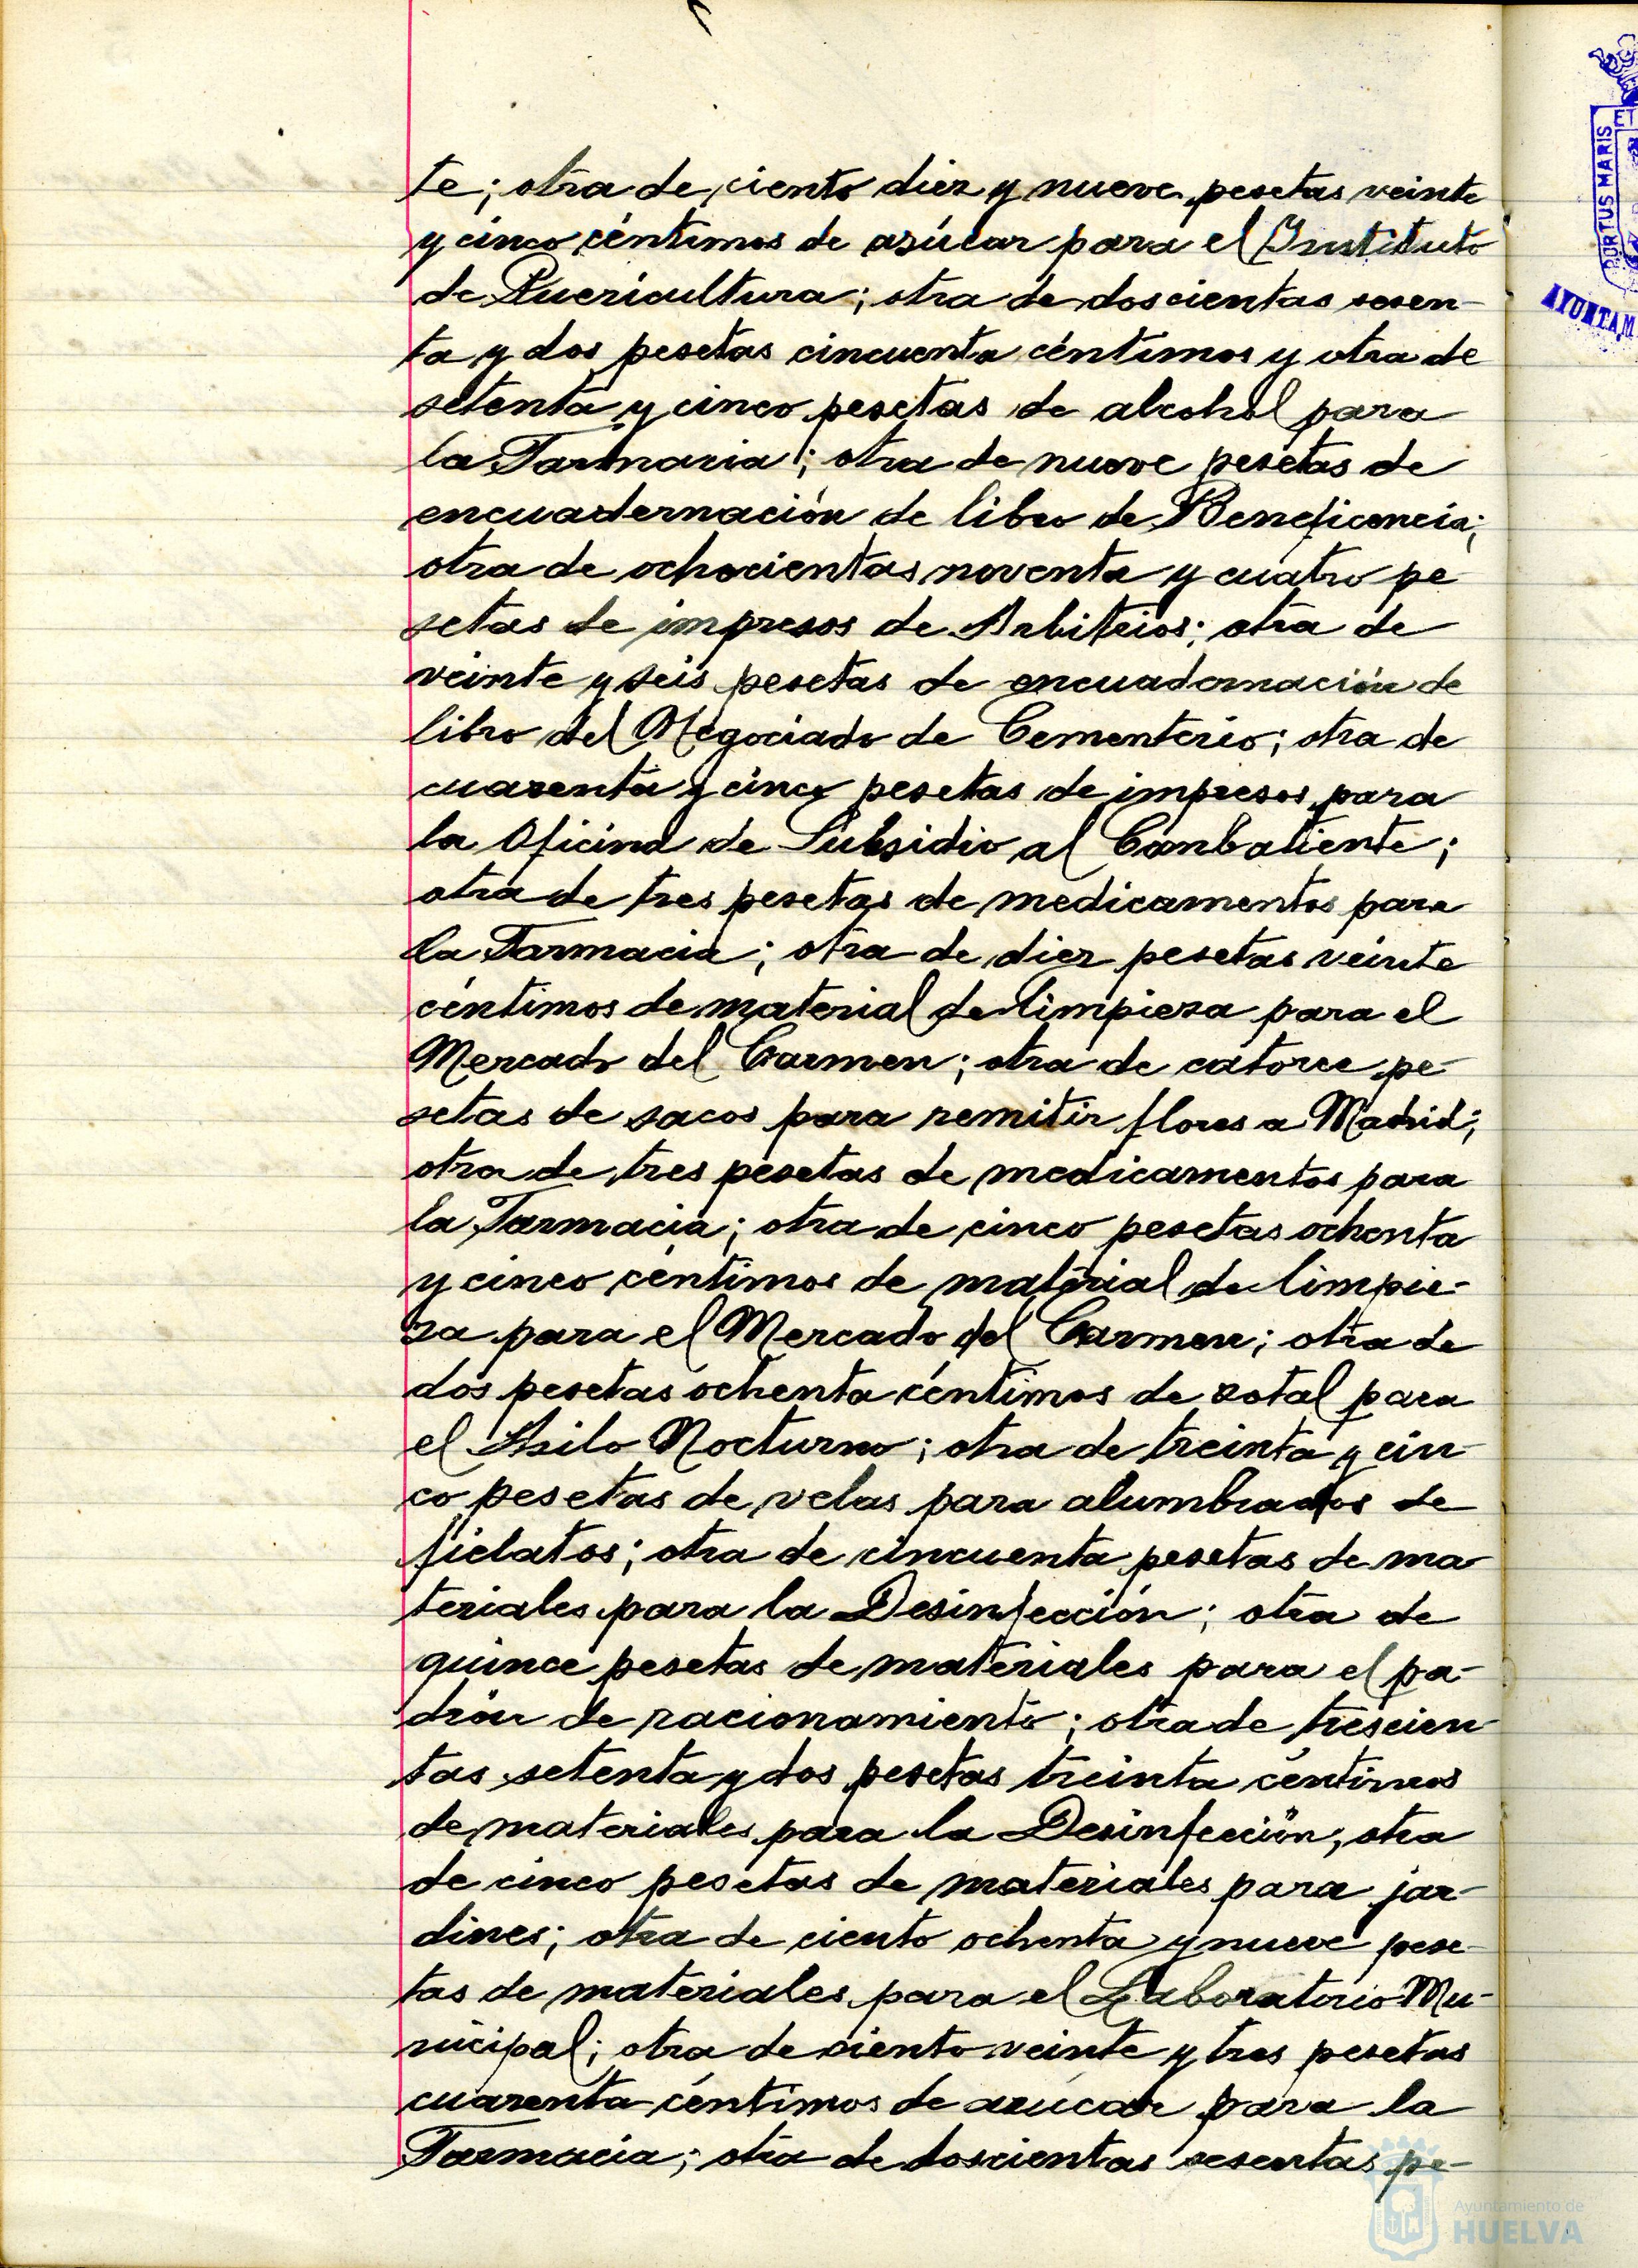 te; otra de ciento diez y nueve pesetas veinte
y cinco céntimos de azúcar para el Instituto
de Puericultura; otra de doscientas sesen-
ta y dos pesetas cincuenta céntimos y otra de
setenta y cinco pesetas de alcohol para
la Farmacia; otra de nueve pesetas de
encuadernación de libro de Beneficencia;
otra de ochocientas noventa y cuatro pe
setas de impresos de Arbitrios; otra de
veinte y seis pesetas de encuadernación de
libro del Negociado de Cementerio; otra de
cuarenta y cinco pesetas de impresos para
la Oficina de Subsidio al Conbatiente;
otra de tres pesetas de medicamentos para
la Farmacia; otra de diez pesetas veinte
céntimos de material de limpieza para el
Mercado del Carmen; otra de catorce pe-
setas de sacos para remitir flores a Madrid;
otra de tres pesetas de medicamentos para
la Farmacia; otra de cinco pesetas ochenta
y cinco céntimos de material de limpie-
za para el Mercado del Carmen; otra de
dos pesetas ochenta céntimos de zotal para
el Asilo Nocturno; otra de treinta y cin-
co pesetas de velas para alumbrados de
fielatos; otra de cincuenta pesetas de ma-
teriales para la Desinfección; otra de
quince pesetas de materiales para el pa-
drón de racionamiento; otra de trescien-
tas setenta y dos pesetas treinta céntimos
de materiales para la Desinfección, otra
de cinco pesetas de materiales para jar-
dines; otra de ciento ochenta y nueve pese-
tas de materiales para el Laboratorio Mu-
nicipal; otra de ciento veinte y tres pesetas
cuarenta céntimos de azúcar para la
Farmacia; otra de doscientas sesentas pe-
PORTUS MARIS
ET
AYUNTAM
Ayuntamiento de
HUELVA